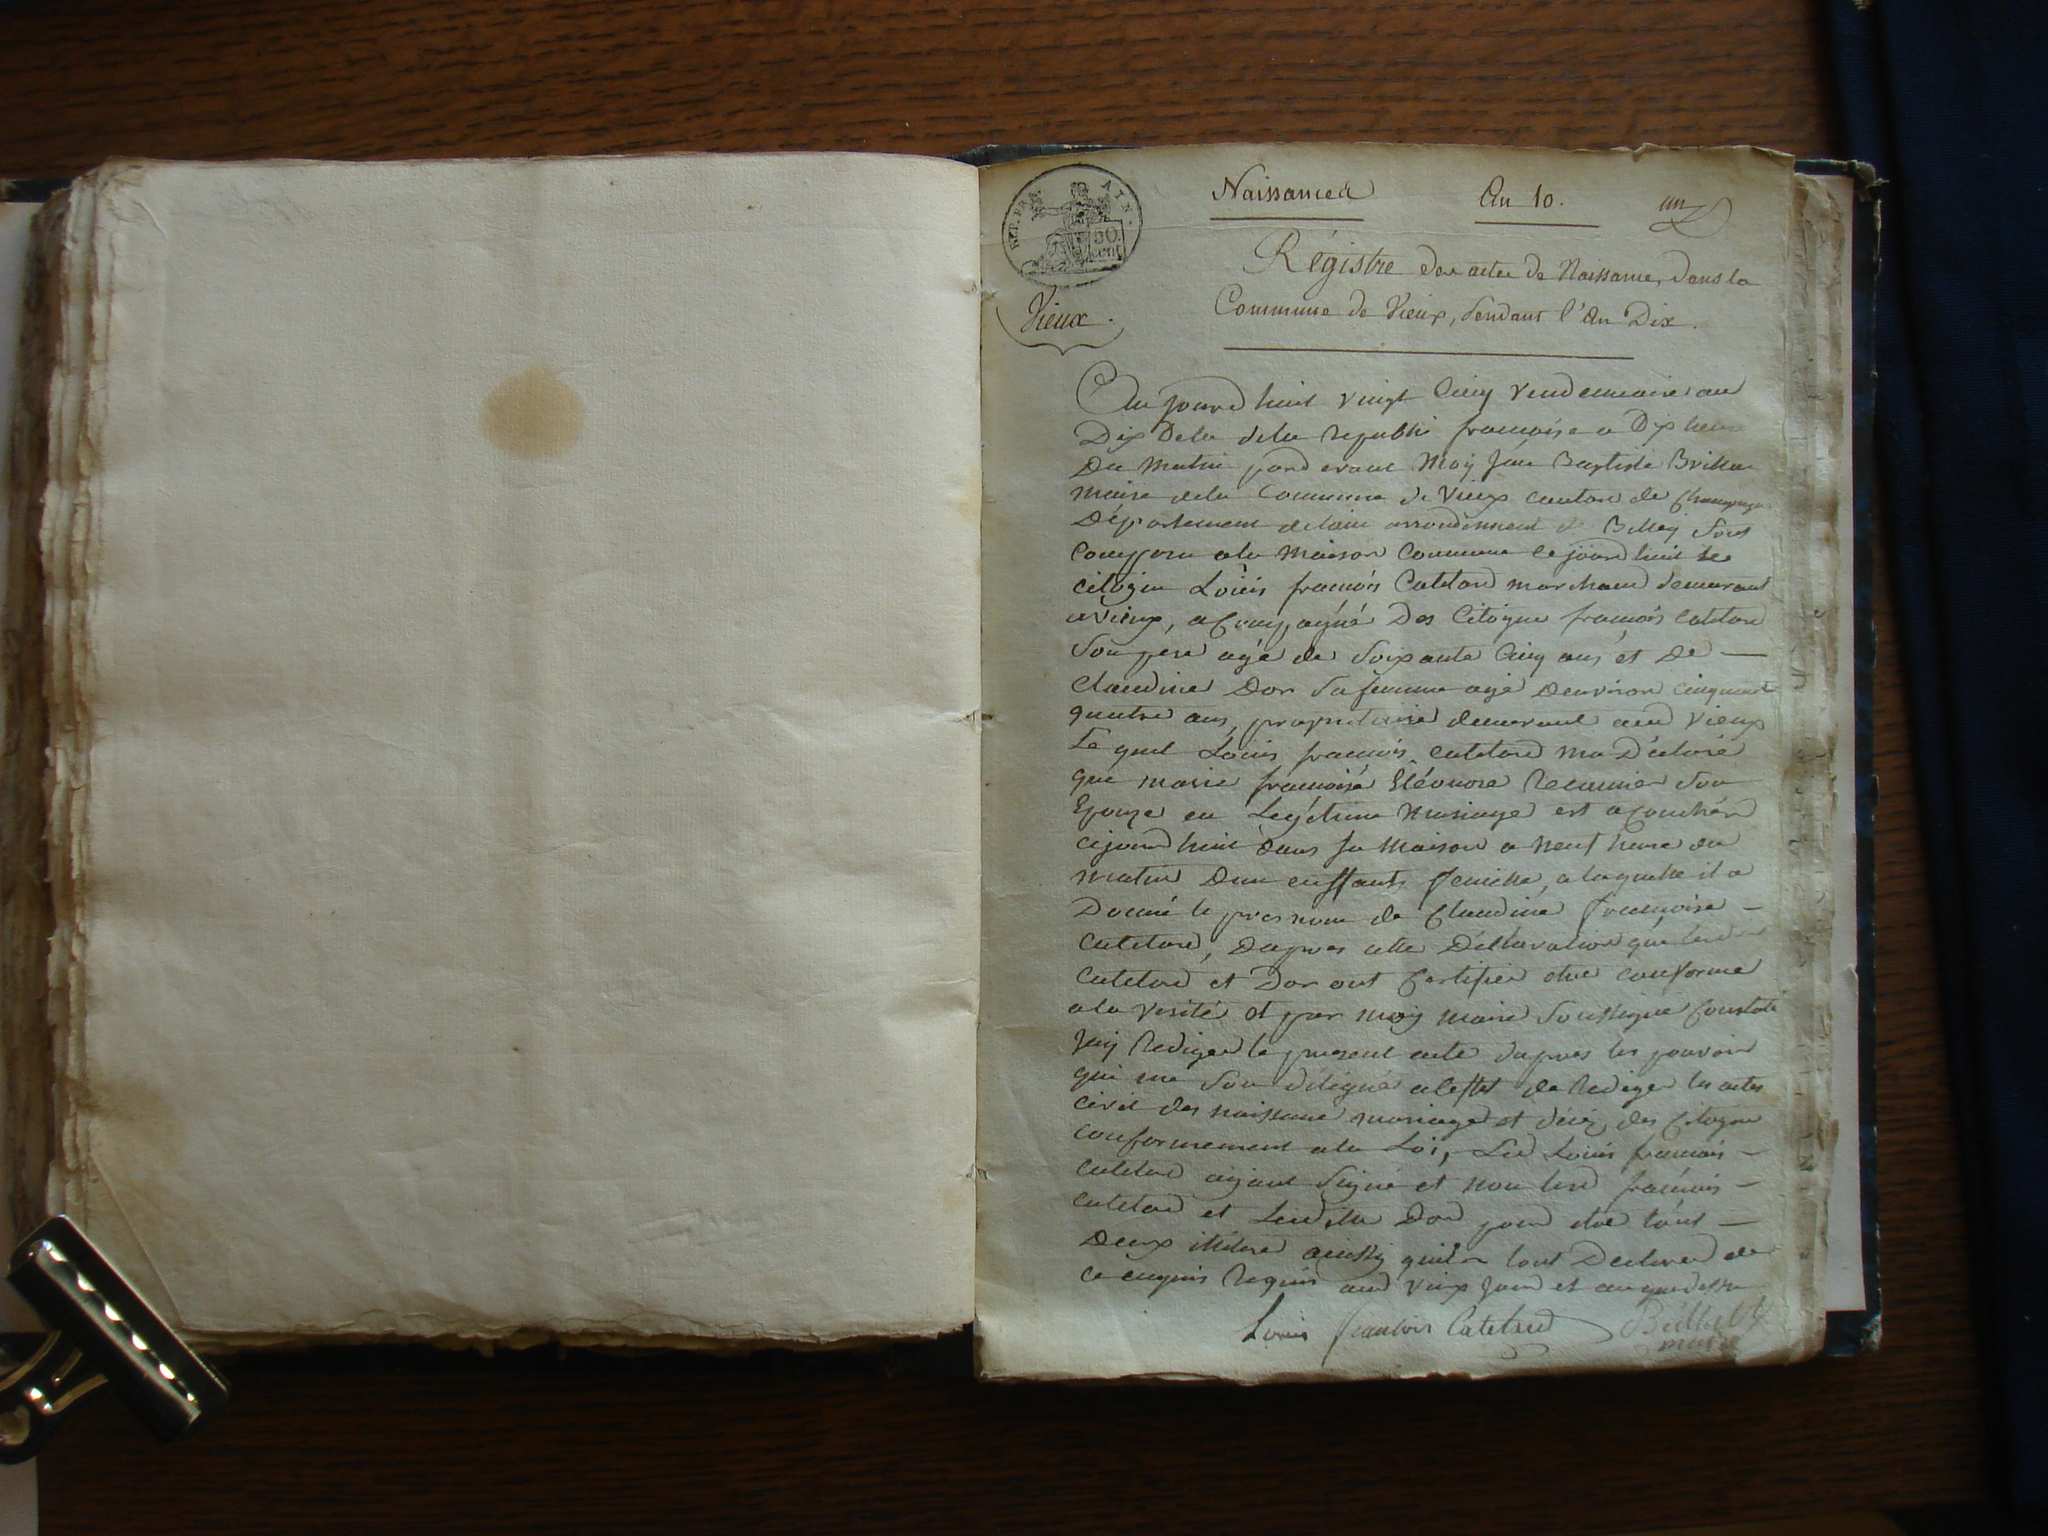 Naissances An 10. un
REP. FRA. AIN.
50. cent
Régistre des actes de Naissance, dans la
Vieux.
Commune de Vieux, pendant l'An Dix.
Au jourd huit vingt Cinq Vendemaire an
Dix De la dela Republi francoise a Dix heure
Du Matin pard evant Moÿ Jean Baptiste Brillat
maire dela Commune de Vieux canton de Champagne
Département delain arrondissement de Belley Sont
Comparu ala Maison Commune ce jourd huit le
citoyen Loüis francois Catelard marchand demeurant
a Vieux, acompagné Des Citoyen francois Catelard
Son pere agé de Soixante Cinq ans et De —
Claudine Dor Sa femme agé Denviron cinquante
quatre ans, proprietaire demeurant aud Vieux
Le quel Loüis francois Catelard ma Déclaré
que marie francoise Eléonore Recamier Son
Epouze en Legétime Mariage est acouchée
cejourd huit dans Sa Maison a neuf heure du
matin Dun enffants femelle, a laquelle il a
Donné le pres nom de Claudine francoise —
Catelard, Dapres cette Déclaration que lesd
Catelard et Dor ont Certifier etre conforme
a la Verité et par moÿ maire Soussigné Constaté
Jaij Rediger le present acte dapres les pouvoir
qui me Son délégué aleffet de Rediger les actes
civil des naissance mariage et décès des Citoyen
conformement ala Loi, Led Loüis francois —
Catelard aijant Signé et non led francois —
Catelard et Ladite Dor pour etre tout —
Deux illitere ainssij quil lont Declarer de
ce enquis Requis aud Vieux Jour et an que dessu
Louis francois Catelard Brillat
maire